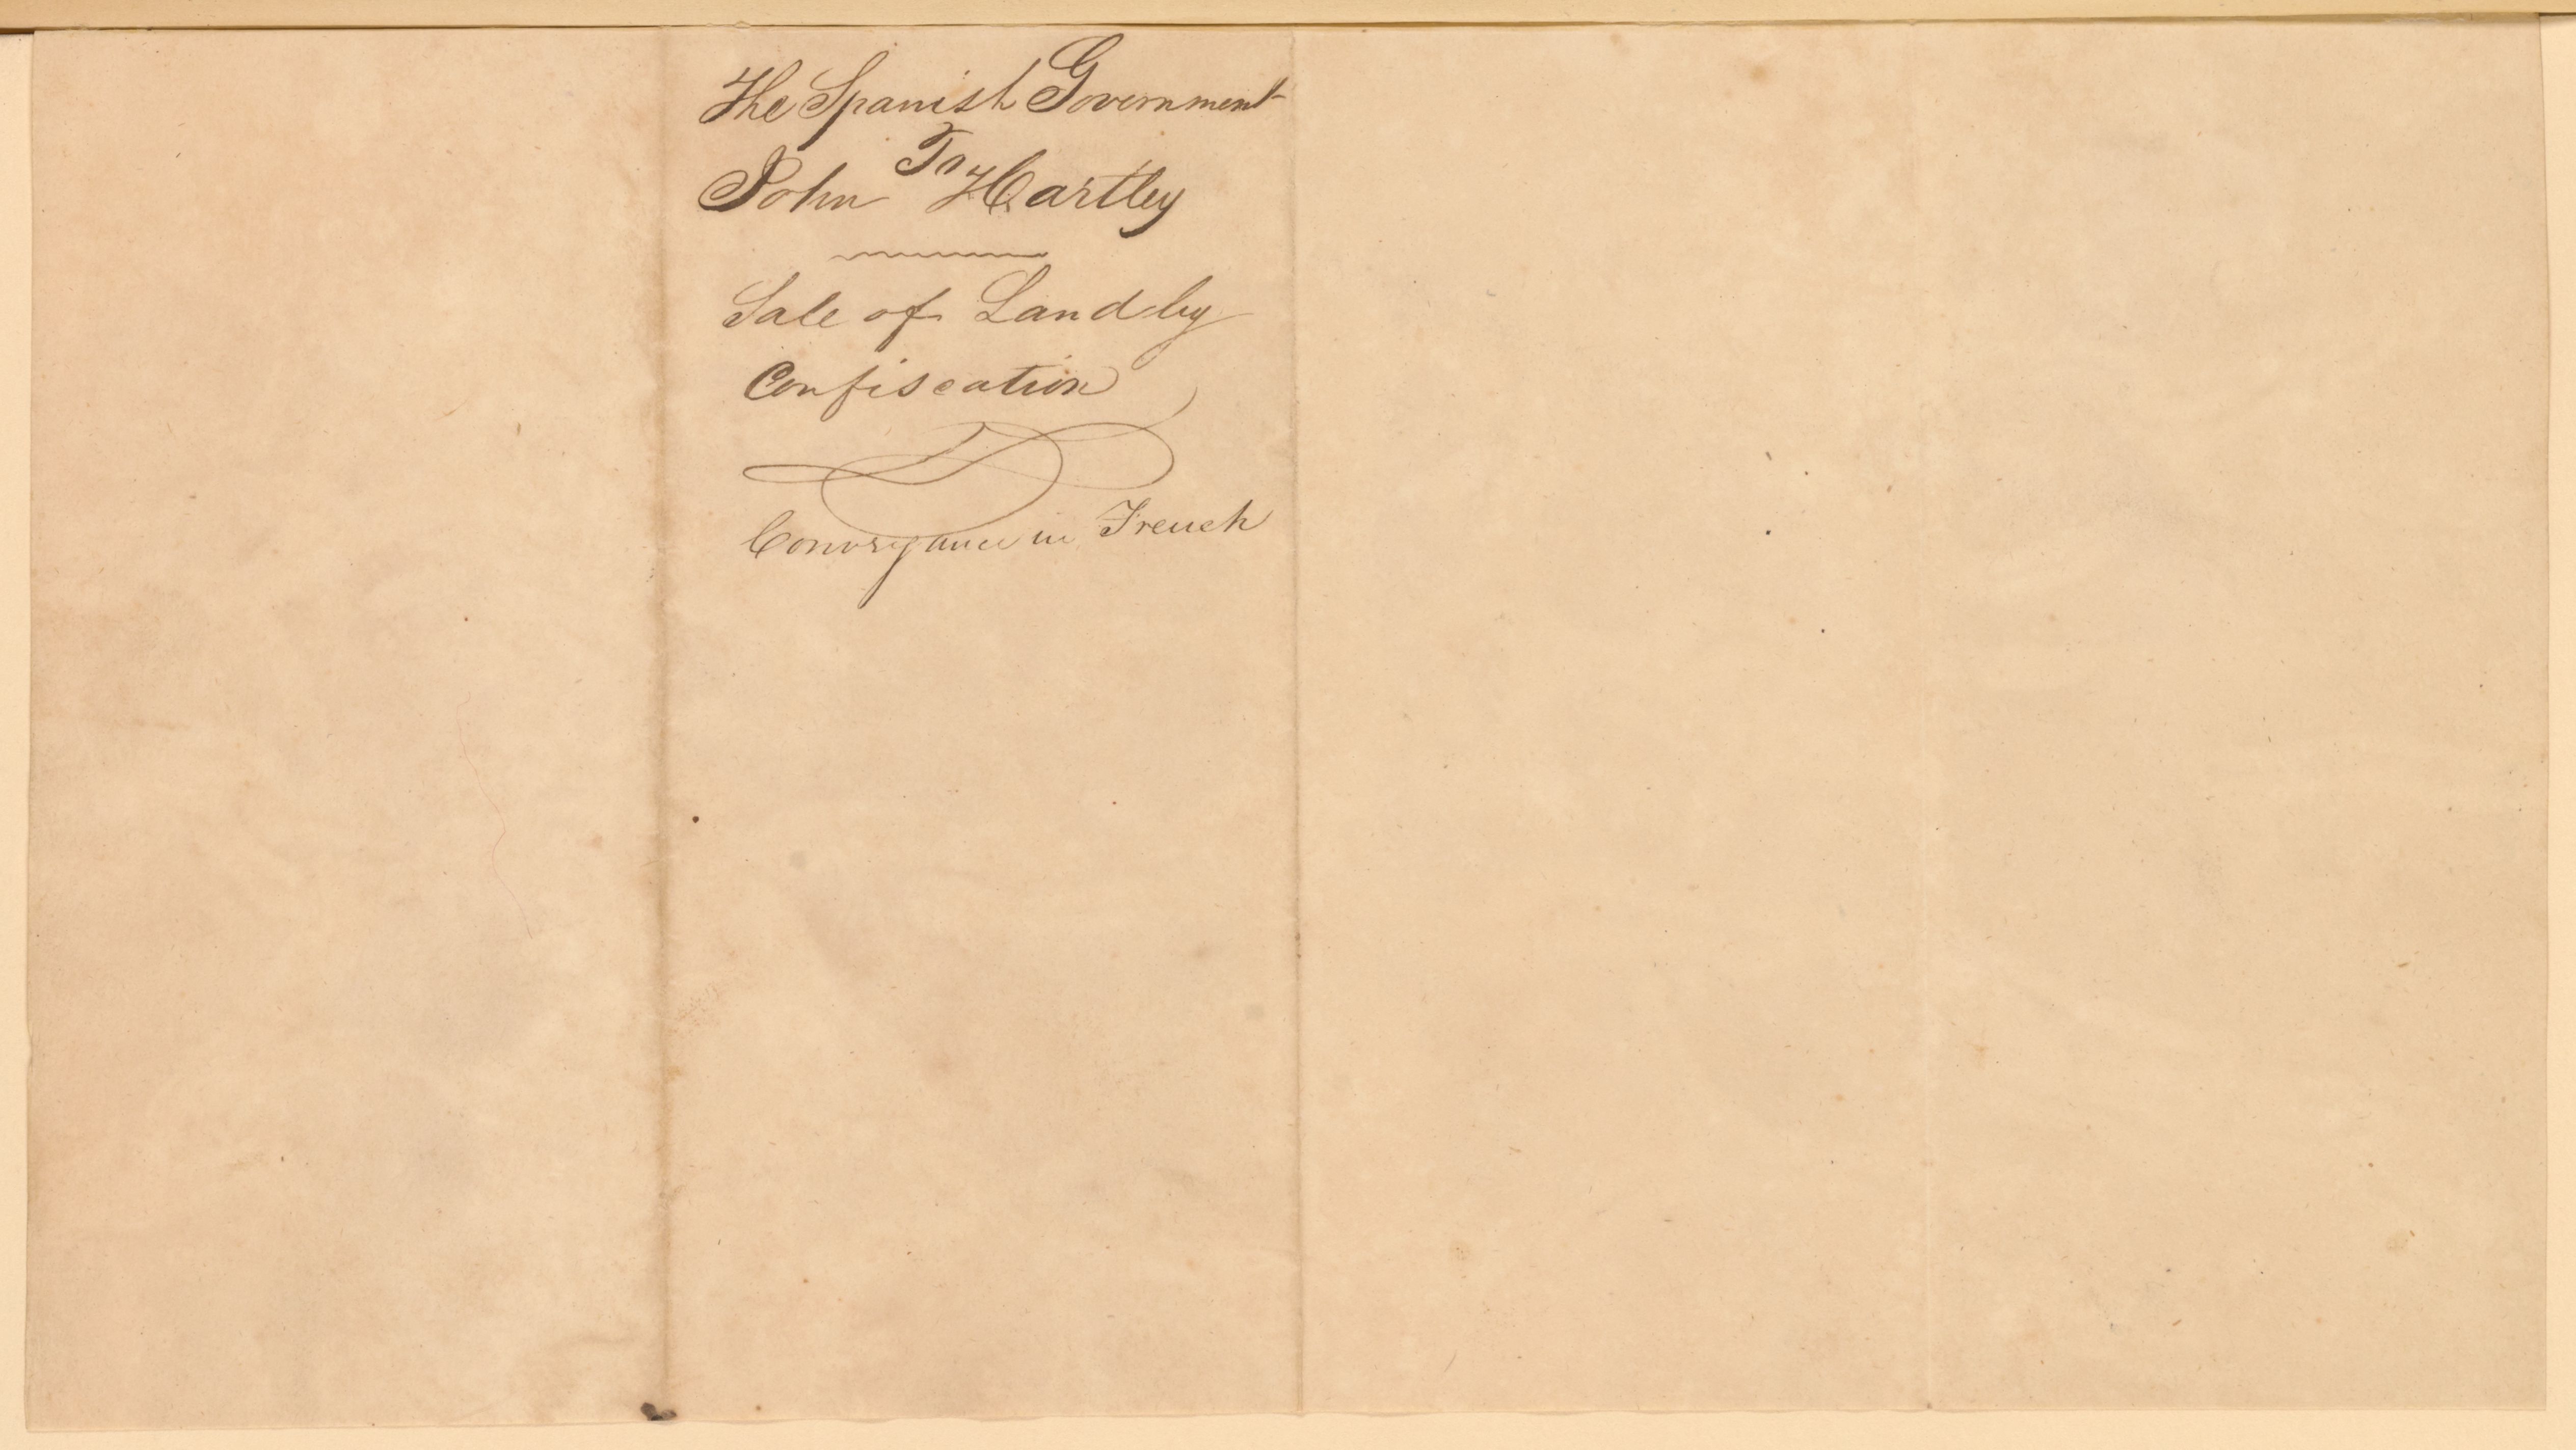 The Spanish Government
To
John Hartley
Sale of Land by
Confiscation
Conveyance in French